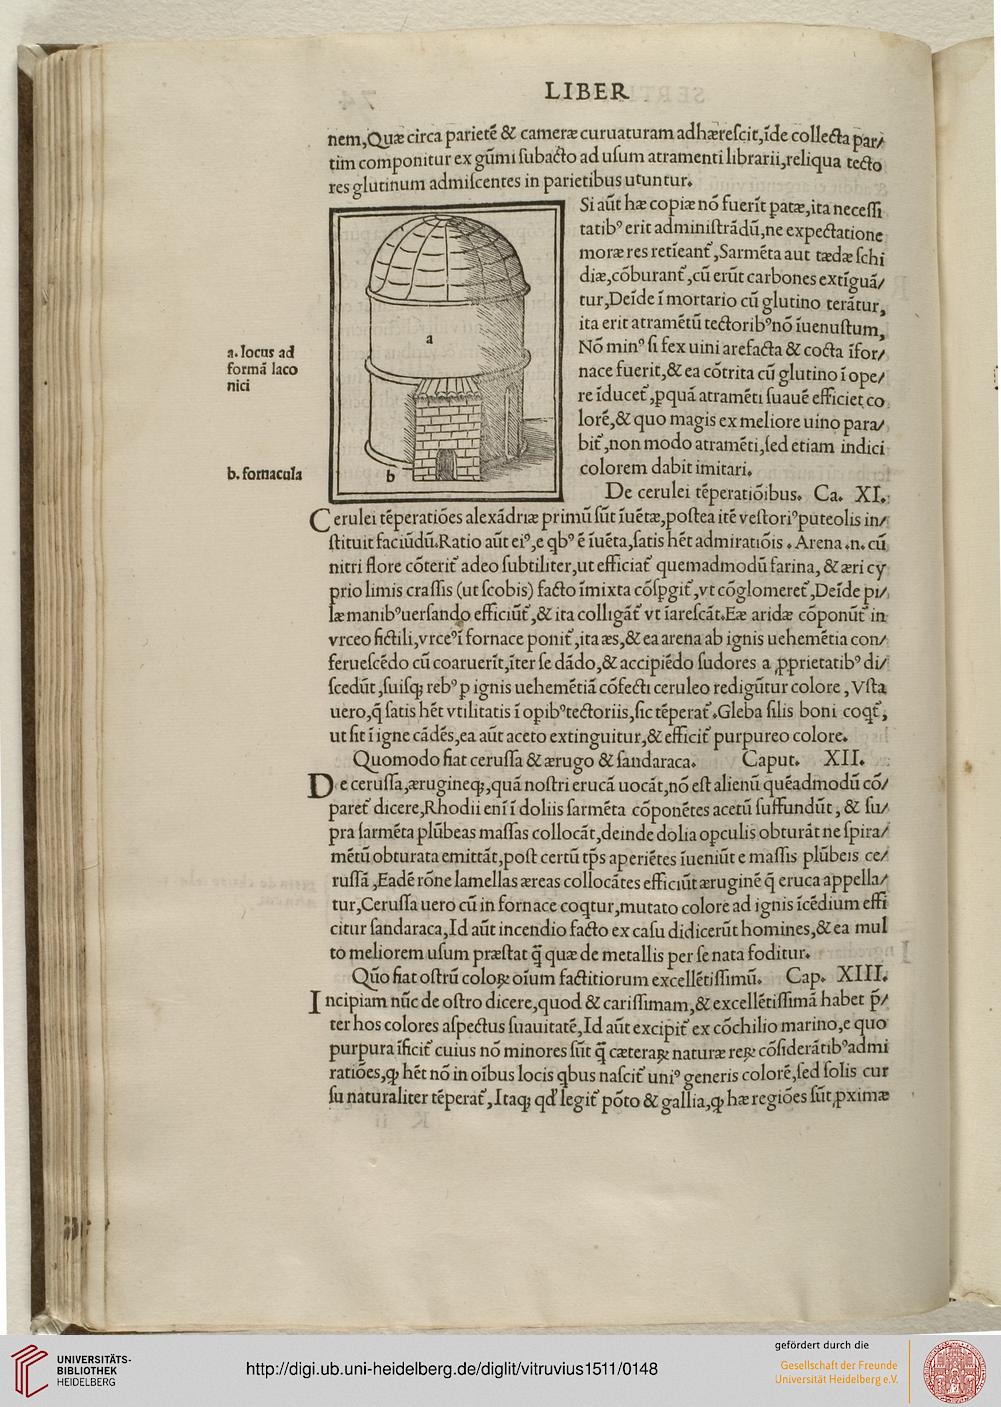 LIBER
nem,Quæ circa parietē & cameræ curuaturam adhæreſcit,īde collecta par/
tim componitur ex gūmi ſubacto ad uſum atramenti librarii,reliqua tecto
res glutinum admiſcentes in parietibus utuntur.
Si aūt hæ copiæ nō fuerīt patæ,ita neceſſi
tatibꝰ erit adminiſtrādū,ne expectatione
moræ res retīeant᷑,Sarmēta aut tædæ ſchi
diæ,cōburant᷑,cū erūt carbones extīguā/
tur,Deīde ī mortario cū glutino terātur,
ita erit atramētū tectoribꝰ nō īuenuſtum,
Nō minꝰ ſi fex uini arefacta & cocta īfor/
nace fuerit,& ea cōtrita cū glutino ī ope/
re īducet᷑,ꝓquā atramēti ſuauē efficiet co
lorē,& quo magis ex meliore uino para/
bit᷑,non modo atramēti,ſed etiam indici
colorem dabit imitari.
a. locus ad
formā laco
nici
b. fornacula
a
b
De cerulei tēperatiōibus. Ca. XI.
Cerulei tēperatiōes alexādriæ primū ſūt īuētæ,poſtea itē veſtoriꝰ puteolis in/
ſtituit faciūdū.Ratio aūt eiꝰ,e qbꝰ ē īuēta,ſatis hēt admiratiōis . Arena .n. cū
nitri flore cōterit᷑ adeo ſubtiliter,ut efficiat᷑ quemadmodū farina, & æri cy
prio limis craſſis (ut ſcobis) facto īmixta cōſpgit᷑,vt cōglomeret᷑,Deīde pi/
læ manibꝰ uerſando efficiūt᷑,& ita colligāt᷑ vt īareſcāt.Eæ aridæ cōponūt᷑ in
vrceo fictili,vrceꝰ ī fornace ponit᷑,ita æs,& ea arena ab ignis uehemētia con/
ferueſcēdo cū coaruerīt,īter ſe dādo,& accipiēdo ſudores a ꝓprietatibꝰ di/
ſcedūt,ſuiſqꝫ rebꝰ p ignis uehemētiā cōfecti ceruleo redigūtur colore , Vſta
uero,q̄ ſatis hēt vtilitatis ī opibꝰ tectoriis,ſic tēperat᷑.Gleba ſilis boni coqt᷑,
ut ſit ī igne cādēs,ea aūt aceto extinguitur,& efficit᷑ purpureo colore.
Quomodo fiat ceruſſa & ærugo & ſandaraca. Caput. XII.
De ceruſſa,ærugineqꝫ,quā noſtri erucā uocāt,nō eſt alienū quēadmodū cō/
paret᷑ dicere,Rhodii enī ī doliis ſarmēta cōponētes acetū ſuffundūt , & ſu/
pra ſarmēta plūbeas maſſas collocāt,deinde dolia opculis obturāt ne ſpira/
mētū obturata emittāt,poſt certū tp̄s aperiētes īueniūt e maſſis plūbeis ce/
ruſſā ,Eadē rōne lamellas æreas collocātes efficiūt æruginē q̄ eruca appella/
tur,Ceruſſa uero cū in fornace coqtur,mutato colore ad ignis īcēdium effi
citur ſandaraca,Id aūt incendio facto ex caſu didicerūt homines,& ea mul
to meliorem uſum præſtat q̄ quæ de metallis per ſe nata foditur.
Quō fiat oſtrū coloꝝ oīum factitiorum excellētiſſimū. Cap. XIII.
Incipiam nūc de oſtro dicere,quod & cariſſimam,& excellētiſſimā habet p̄/
ter hos colores aſpectus ſuauitatē,Id aūt excipit᷑ ex cōchilio marino,e quo
purpura īficit᷑ cuius nō minores ſūt q̄ cæteraꝝ naturæ reꝝ cōſiderātibꝰ admi
ratiōes,ꝙ hēt nō in oībus locis qbus naſcit᷑ uniꝰ generis colorē,ſed ſolis cur
ſu naturaliter tēperat᷑,Itaqꝫ qd' legit᷑ pōto & gallia,ꝙ hæ regiōes ſūt ꝓximæ
UNIVERSITÄTS-
BIBLIOTHEK
HEIDELBERG
http://digi.ub.uni-heidelberg.de/diglit/vitruvius1511/0148
gefördert durch die
Gesellschaft der Freunde
Universität Heidelberg e.V.